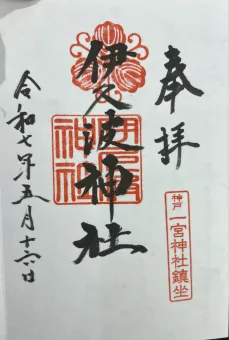 奉拝
伊久波神社
伊久波
神社
神戸
一宮神社鎮坐
令和七年五月十六日